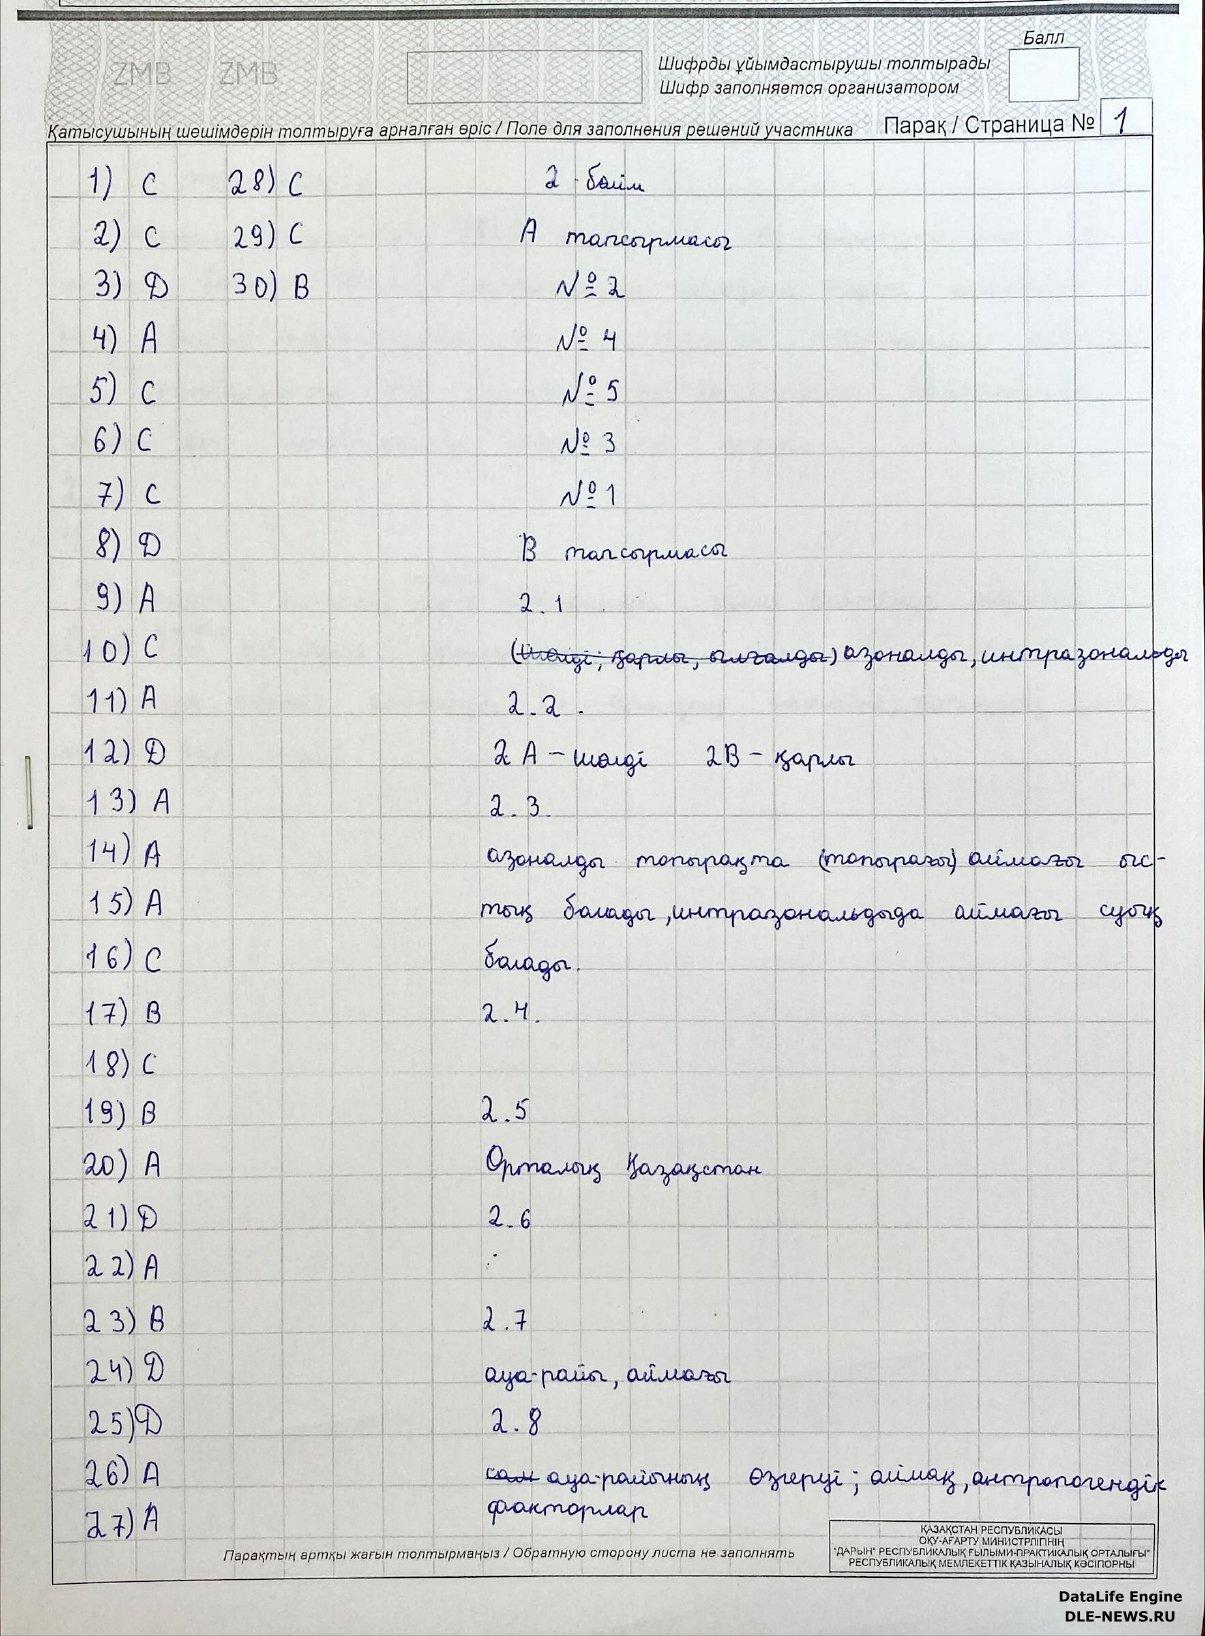 ZMB ZMB
Балл
Шифрды ұйымдастырушы толтырады
Шифр заполняется организатором
Қатысушының шешімдерін толтыруға арналған өріс / Поле для заполнения решений участника
Парақ / Страница № 1
1) C
2) C
3) D
4) A
5) C
6) C
7) C
8) D
9) A
10) C
11) A
12) D
13) A
14) A
15) A
16) C
17) B
18) C
19) B
20) A
21) D
22) A
23) B
24) D
25) D
26) A
27) A
28) C
29) C
30) B
2 - бөлім
А тапсырмасы
№ 2
№ 4
№ 5
№ 3
№ 1
В тапсырмасы
2.1
(шөлді; қарлы, ылғалды) азоналды, интразональды
2.2.
2 А – шөлді 2В – қарлы
2.3.
азоналды топырақта (топырағы) аймағы ыс-
тық болады, интразональдыда аймағы суық
болады.
2.4.
2.5
Орталық Қазақстан
2.6
2.7
ауа-райы, аймағы
2.8
сам ауа-райының өзгеруі; аймақ, антропогендік
факторлар
Парақтың артқы жағын толтырмаңыз / Обратную сторону листа не заполнять
ҚАЗАҚСТАН РЕСПУБЛИКАСЫ
ОҚУ-АҒАРТУ МИНИСТРЛІГІНІҢ
"ДАРЫН" РЕСПУБЛИКАЛЫҚ ҒЫЛЫМИ-ПРАКТИКАЛЫҚ ОРТАЛЫҒЫ"
РЕСПУБЛИКАЛЫҚ МЕМЛЕКЕТТІК ҚАЗЫНАЛЫҚ КӘСІПОРНЫ
DataLife Engine
DLE-NEWS.RU